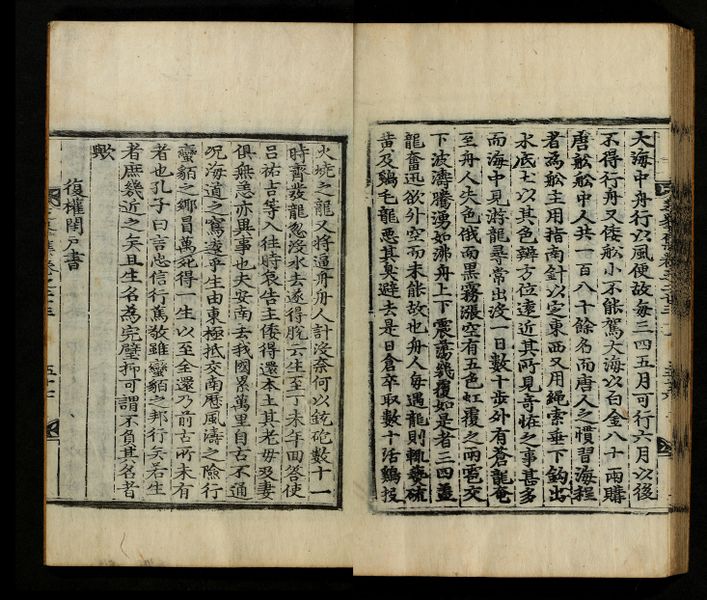 大海中舟行以風便故每三四五月可行六月以後
不得行舟又倭舩小不能駕大海以白金八十兩購
唐舩舩中人共一百八十餘名而唐人之慣習海程
者爲舩主用指南針以定東西又用繩索垂下鈎出
水底土以其色辨方位遠近其所見奇恠之事甚多
而海中見游龍尋常出沒一日數十步外有蒼龍奄
至舟人失色俄而黑霧漲空有五色虹覆之雨雹交
下波濤騰湧如沸舟上下震蕩幾覆如是者三四蓋
龍奮迅欲外空而未能故也舟人每遇龍則輒爇硫
黄及鷄毛龍惡其臭避去是日倉卒取數十活鷄投
火燒之龍又將逼舟舟人計沒奈何以銃砲數十一
時齊發龍忽沒水去遂得脫云生至丁未年回答使
呂祐吉等入往時哀告主倭得還本土其老母及妻
俱無恙亦異事也夫安南去我國累萬里自古不通
况海道之窵遠乎生由東極抵交南歷風濤之險行
蠻貊之鄉冒萬死得一生以至全還乃前古所未有
者也孔子曰言忠信行篤敬雖蠻貊之邦行矣若生
者庶幾近之矣且生名爲完璧抑可謂不負其名者
歟
復權開戸書